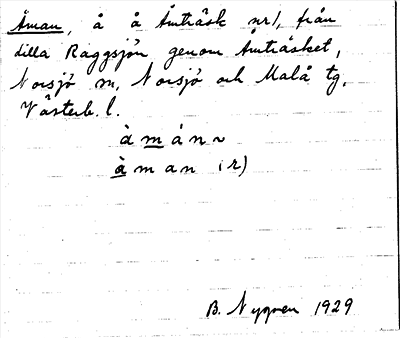 Åman, å å Åmträsk nr 1, från
Lilla Raggsjön genom Åmträsket,
Norsjö sn, Norsjö och Malå tg,
Västerb. l.
àmánn
àman (r)
B. Nygren 1929